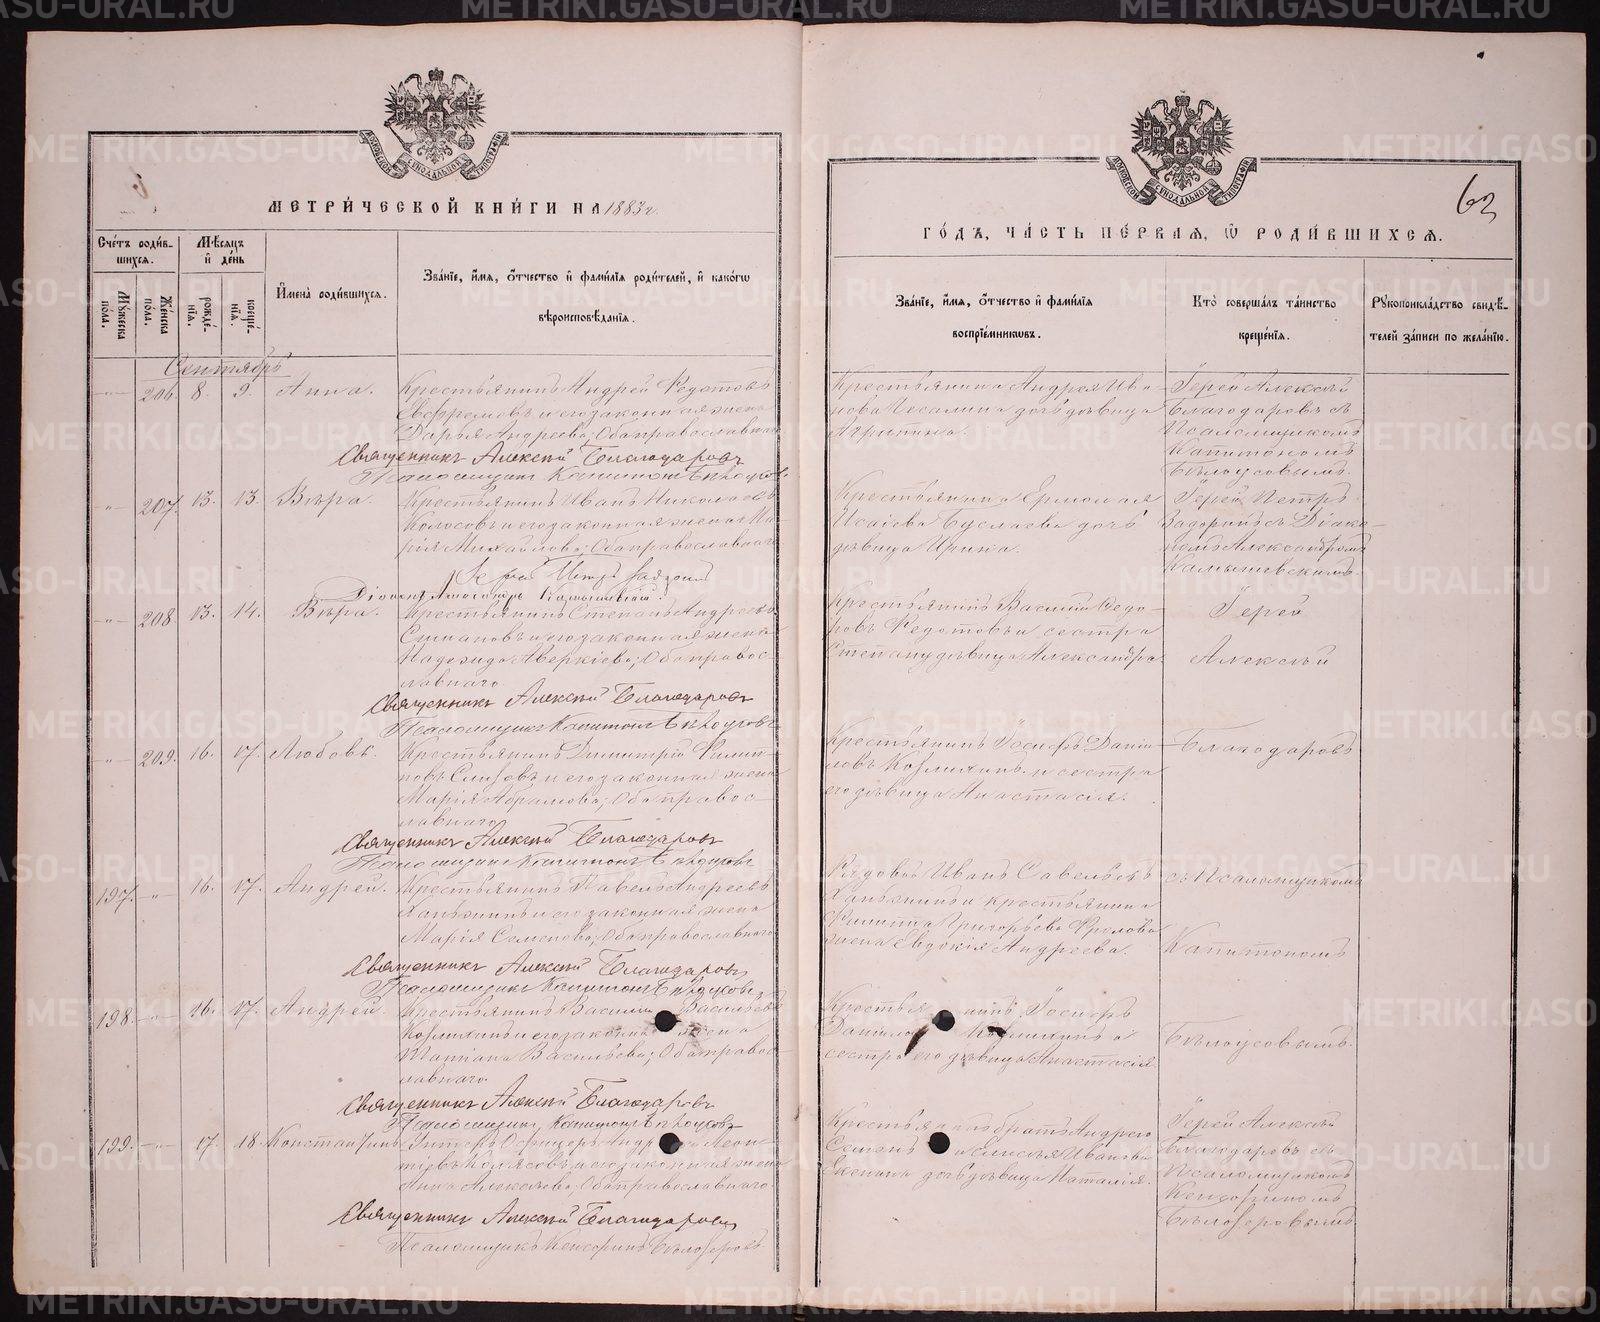 МЕТРИЧЕСКОЙ КНИГИ НА 1883 г.
Счетъ родившихся.
Мѣсяцъ и день
Имена родившихся.
Званіе, имя, отчество и фамилія родителей, и какого
вѣроисповѣданія.
Мужеска пола.
Женска пола.
рожденія.
крещенія.
Сентябрь
206. 8. 9. Анна. Крестьянинъ Андрей Федотовъ
Евфремовъ и его законная жена
Дарья Андреева; оба православнаго
Священникъ Алексѣй Благодаровъ
Псаломщикъ Капитонъ Бѣлоусовъ
207. 13. 13. Вѣра. Крестьянинъ Иванъ Николаевъ
Колосовъ и его законная жена Ма-
рія Михайлова; оба православнаго
Іерей Петръ
Діаконъ Александръ Камышевскій
208. 13. 14. Вѣра. Крестьянинъ Степанъ Андреевъ
и его законная жена
Надежда Аверкіева; оба православ-
лавнаго.
Священникъ Алексѣй Благодаровъ
Псаломщикъ Капитонъ Бѣлоусовъ
209. 16. 17. Любовь. Крестьянинъ Димитрій Филип-
повъ и его законная жена
Марія Абрамова; оба правос-
лавнаго.
Священникъ Алексѣй Благодаровъ
Псаломщикъ Капитонъ Бѣлоусовъ
197. 16. 17. Андрей. Крестьянинъ Павелъ Андреевъ
и его законная жена
Марія Семенова; оба православнаго
Священникъ Алексѣй Благодаровъ
Псаломщикъ Капитонъ Бѣлоусовъ
198. 16. 17. Андрей. Крестьянинъ Василій Васильевъ
и его законная жена
Татіана Васильева; оба правос-
лавнаго.
Священникъ Алексѣй Благодаровъ
Псаломщикъ Капитонъ Бѣлоусовъ
199. 17. 18. Константинъ. Унтеръ Офицеръ Андрей Леон-
тіевъ Колясовъ и его законная жена
Анна Алексѣева; оба православнаго.
Священникъ Алексѣй Благодаровъ
Псаломщикъ Кенсоринъ Бѣлозеровъ
62
ГОДЪ, ЧАСТЬ ПЕРВАЯ, Ѡ РОДИВШИХСЯ.
Званіе, имя, отчество и фамилія
воспріемниковъ.
Кто совершалъ таинство
крещенія.
Рукоприкладство свидѣ-
телей записи по желанію.
Крестьянина Андрея Ива-
нова дочь дѣвица
Агрипина.
Іерей Алексѣй
Благодаровъ съ
Псаломщикомъ
Капитономъ
Бѣлоусовымъ.
Крестьянина Ермолая
Исаіева Буслаева дочь
дѣвица Ирина.
Іерей Петръ
съ Діако-
номъ Александромъ
Камышевскимъ.
Крестьянинъ Василій Ѳедо-
ровъ Федотовъ и сестра
дѣвица Александра.
Іерей
Алексѣй
Крестьянинъ Іосифъ Дани-
ловъ и сестра
его дѣвица Анастасія.
Благодаровъ
Рядовой Иванъ Савельевъ
и крестьянина
Филиппа Григорьева Фролова
жена Евдокія Андреева.
съ Псаломщикомъ
Капитономъ
Крестьянинъ Іосифъ
сестра его дѣвица Анастасія.
Бѣлоусовымъ.
братъ Андрея
дочь дѣвица Наталія.
Іерей Алексѣй
Благодаровъ съ
Псаломщикомъ
Кенсориномъ
Бѣлозеровымъ
METRIKI.GASO-URAL.RU